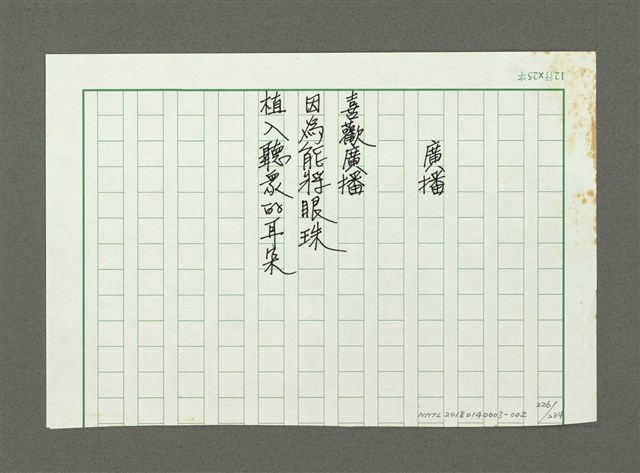 12行×25字
廣播
喜歡廣播
因為能將眼珠
植入聽衆的耳朵
226/234
NMTL 20180140003-002